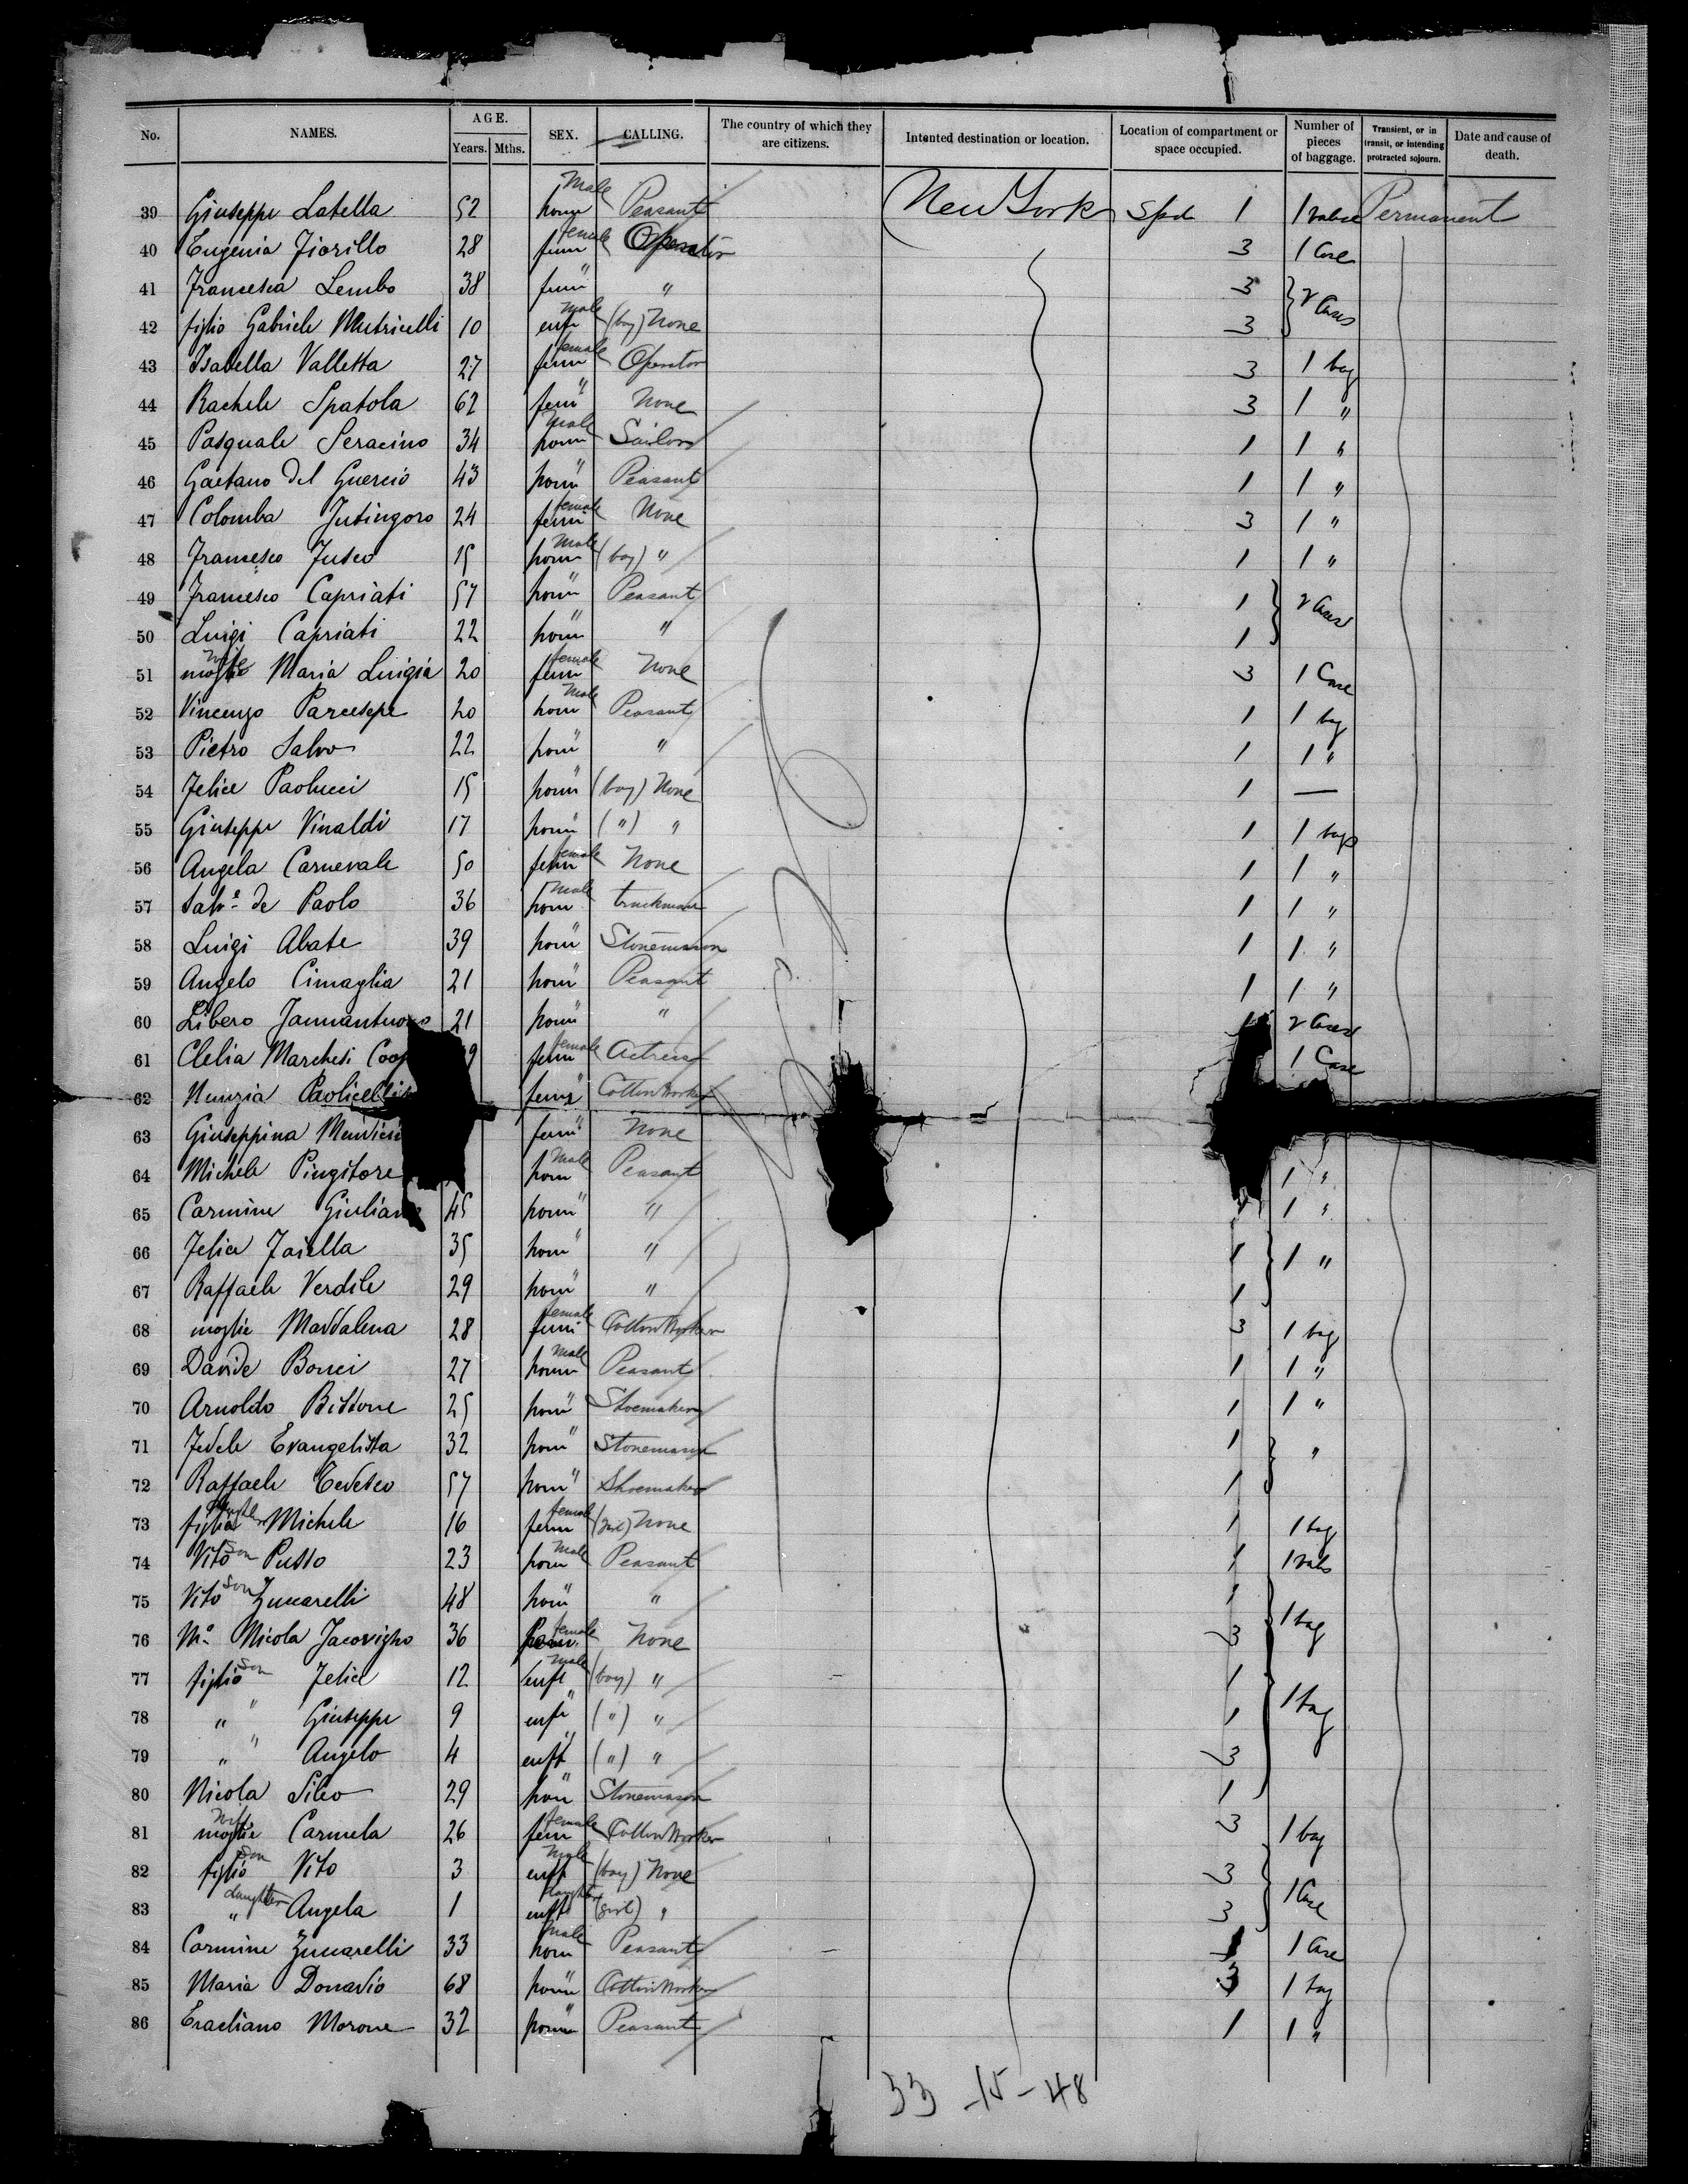 No. NAMES. AGE. Years. Mths. SEX. CALLING. The country of which they are citizens. Intented destination or location. Location of compartment or space occupied. Number of pieces of baggage. Transient, or in transit, or intending protracted sojourn. Date and cause of death.
39 Giuseppe Latella 52 hom Male Peasant New York Spd 1 1 valise Permanent
40 Eugenia Fiorillo 28 fem female Operator 3 1 Case
41 Francesca Lembo 38 fem " " 3 2 Cases
42 figlio Gabriele Mutricelli 10 enft Male (boy) None 3
43 Isabella Valletta 27 fem female Operator 3 1 bag
44 Rachele Spatola 62 fem " None 3 1 "
45 Pasquale Seracino 34 hom Male Sailor 1 1 "
46 Gaetano Del Guercio 43 hom " Peasant 1 1 "
47 Colomba 24 fem female None 3 1 "
48 Francesco Fusco 15 hom Male (boy) " 1 1 "
49 Francesco Capriati 57 hom " Peasant 1 2 Cases
50 Luigi Capriati 22 hom " " 1
51 moglie wife Maria Luigia 20 fem female None 3 1 Case
52 Vincenzo Parcesepe 20 hom Male Peasant 1 1 bag
53 Pietro Salvo 22 hom " " 1 1 "
54 Felice Paolucci 15 hom " (boy) None 1 —
55 Giuseppe Vinaldi 17 hom " (") " 1 1 bag
56 Angela Carnevale 50 fem female None 1 1 "
57 Salv.e de Paolo 36 hom Male truckman 1 1 "
58 Luigi Abate 39 hom " Stonemason 1 1 "
59 Angelo Cimaglia 21 hom " Peasant 1 1 "
60 Libero Jannantuono 21 hom " " 1 2 Cases
61 Clelia Marchesi fem female Actress 1 Case
62 Nunzia Paolicelli fem " Cotton Worker
63 Giuseppina fem " None
64 Michele Pingitore hom Male Peasant 1 "
65 Carmine Giuliano 45 hom " " 1 "
66 Felice Faiella 35 hom " " 1 1 "
67 Raffaele Verdile 29 hom " " 1
68 moglie Maddalena 28 fem female Cotton Worker 3 1 bag
69 Davide Bonci 27 hom Male Peasant 1 1 "
70 Arnoldo Bittone 25 hom " Shoemaker 1 1 "
71 Fedele Evangelista 32 hom " Stonemason 1 "
72 Raffaele Tedesco 57 hom " Shoemaker 1
73 figlia daughter Michele 16 fem female (girl) None 1 1 bag
74 Vito son Pusso 23 hom Male Peasant 1 1 valis
75 Vito son Zuccarelli 48 hom " " 1 1 bag
76 Ma. Nicola Jacoviglio 36 fem. female None 3
77 figlio son Felice 12 enft Male (boy) " 1 1 bag
78 " " Giuseppe 9 enft " (") " 1
79 " " Angelo 4 enft " (") " 3
80 Nicola Sileo 29 hom " Stonemason 1
81 moglie wife Carmela 26 fem female Cotton Worker 3 1 bag
82 figlio son Vito 3 enft Male (boy) None 3 1 Case
83 " daughter Angela 1 enft daughter (girl) " 3
84 Carmine Zuccarelli 33 hom Male Peasant 1 1 Case
85 Maria Donadio 68 hom " Cotton Worker 3 1 bag
86 Eracliano Morone 32 hom " Peasant 1 1 "
33 - 15 - 48